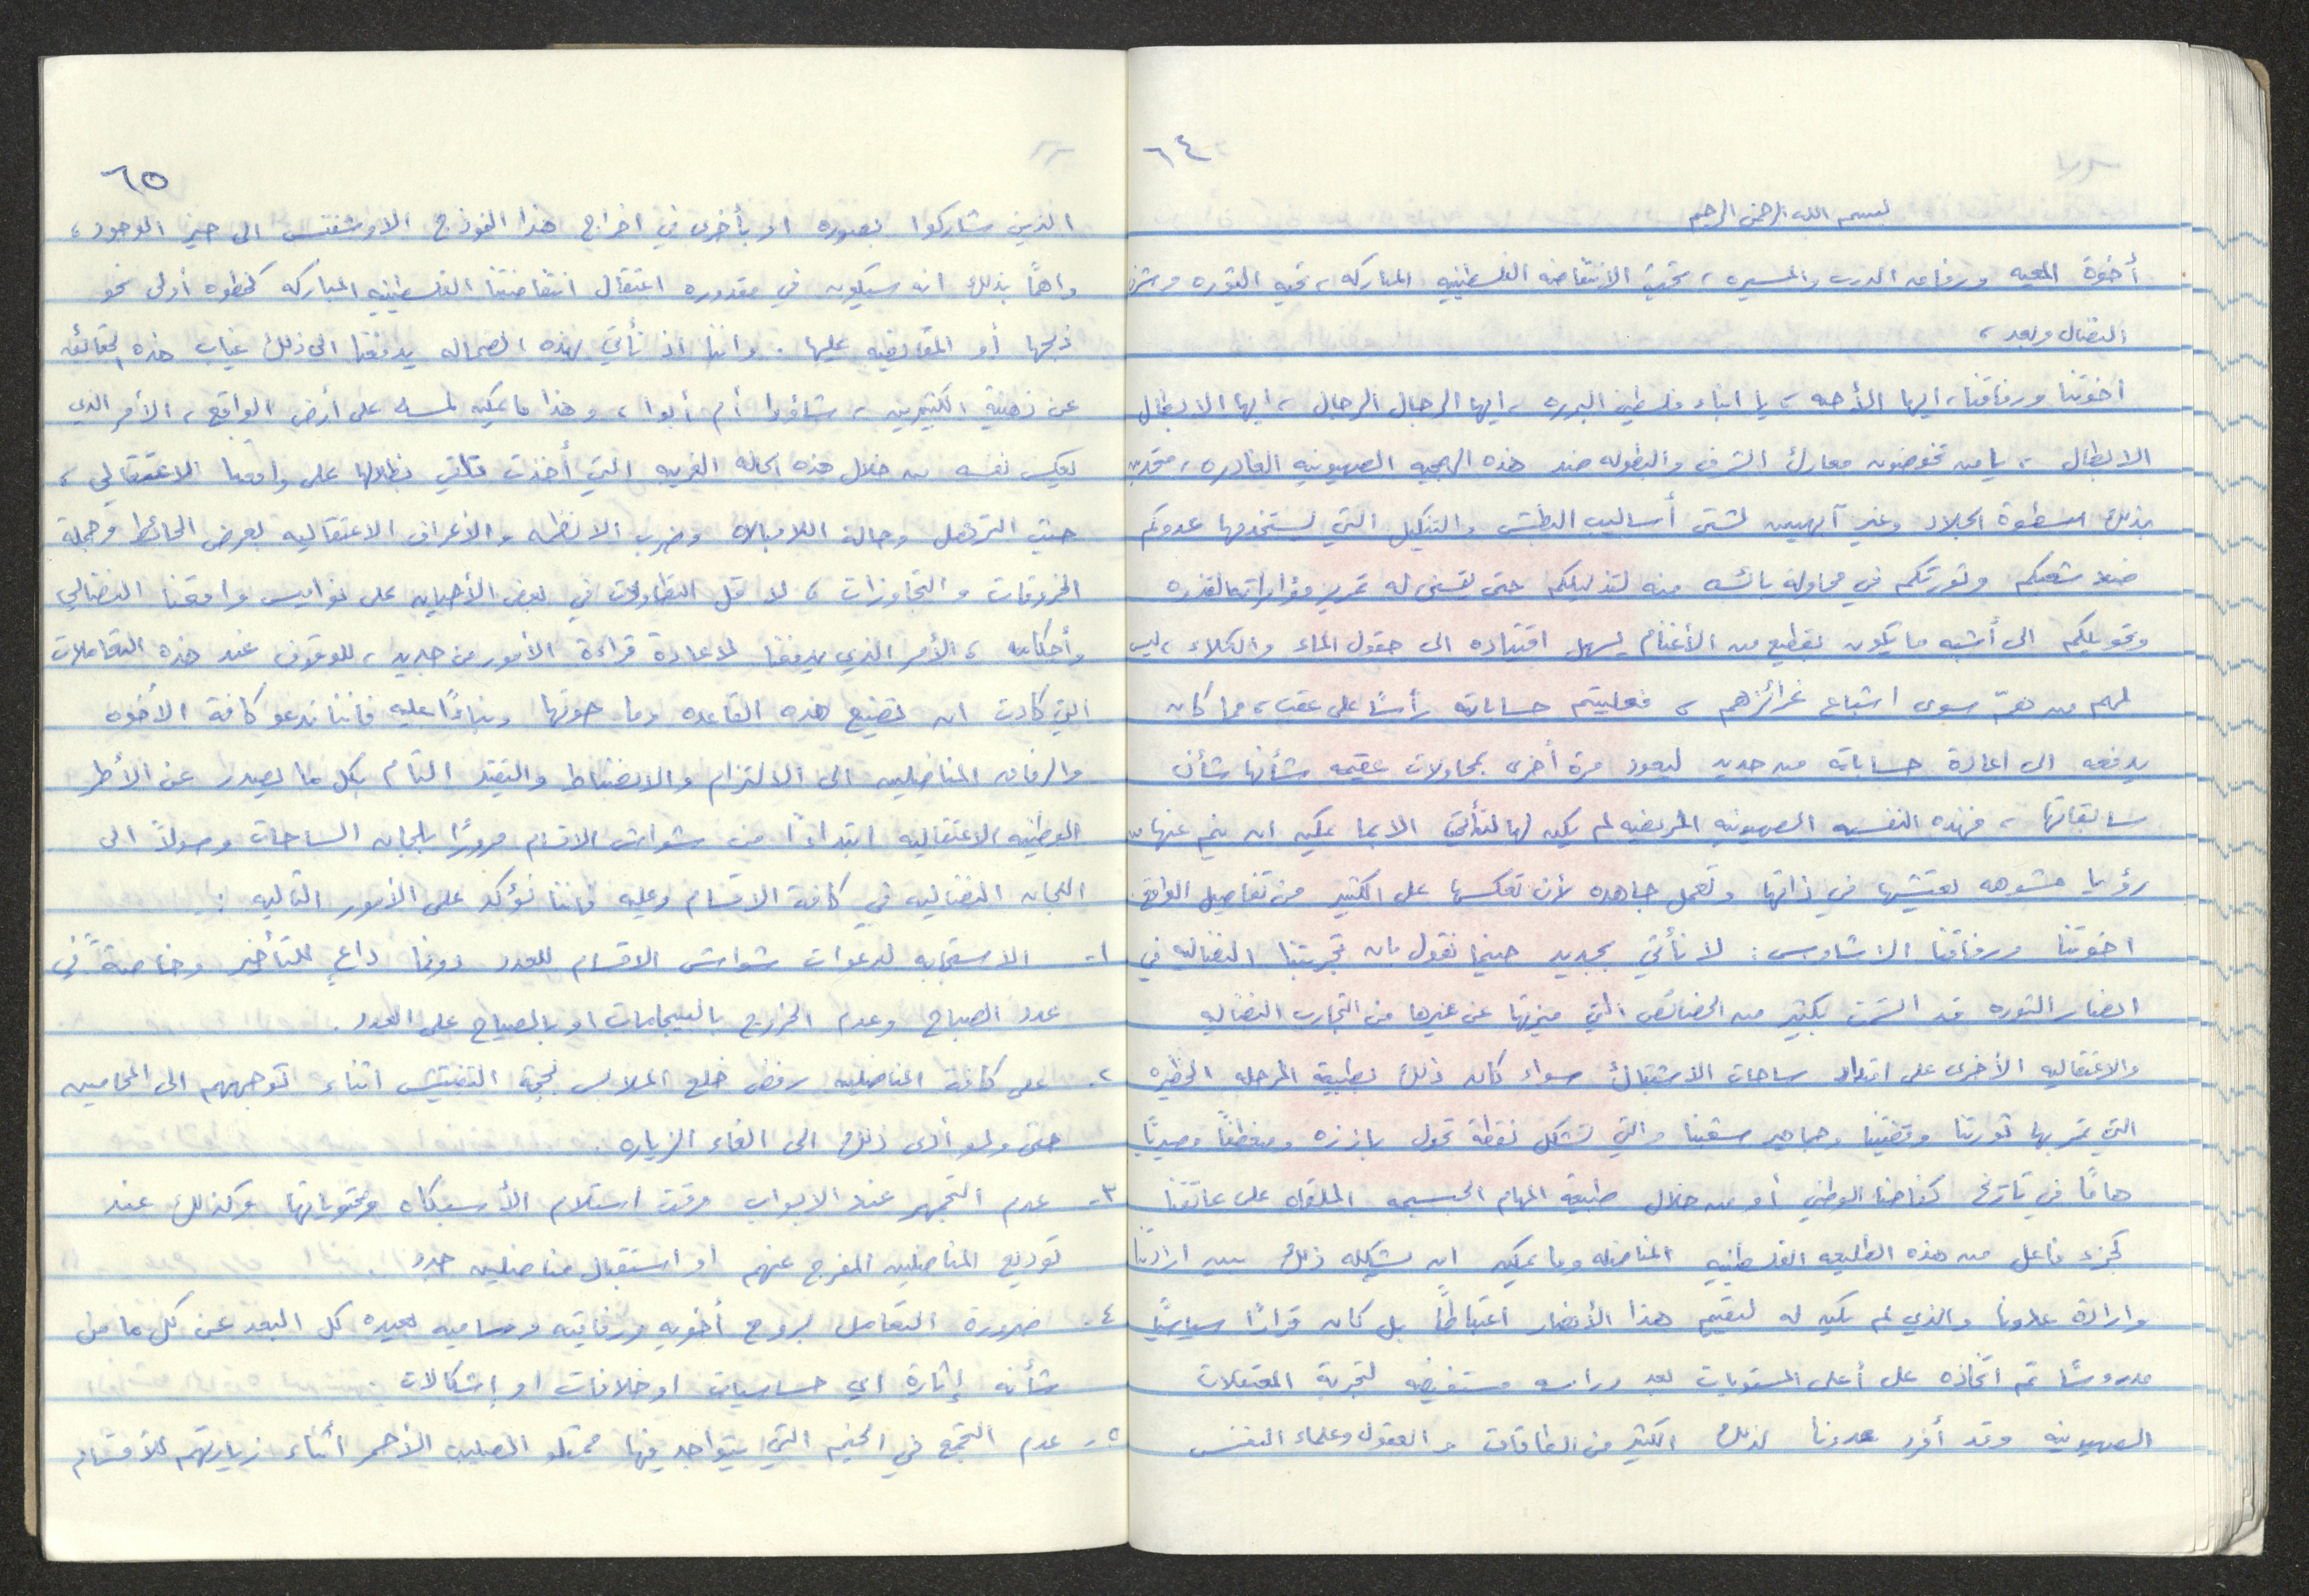 ٦٤
بسم الله الرحمن الرحيم
أخوة المحبه ورفاق الدرب والمسيره، تحية الانتفاضه الفلسطينيه المباركه، تحيه الثوره وشرف
النضال وبعد،
اخوتنا ورفاقنا، ايها الأحبه، يا ابناء فلسطين البرره، ايها الرجال الرجال، ايها الابطال
الابطال، يا من تخوضون معارك الشرف والبطوله ضد هذه الهجمه الصهيونيه الغادره، متحدين
بذلك سطوة الجلاد وغير آبهين لشتى أساليب البطش والتنكيل التي يستخدمها عدوكم
ضد شعبكم وثورتكم في محاولة يائسه منه لتذليلكم حتى يتسنى له تمرير مؤامراته القذره
وتحويلكم الى أشبه ما يكون بقطيع من الأغنام يسهل اقتياده الى حقول الماء والكلاء، ليس
لهم من هم سوى اشباع غرائزهم، فقلبتم حساباته رأسًا على عقب، مما كان
يدفعه الى اعادة حساباته من جديد ليعود مرة أخرى بمحاولات عقيمه شأنها شأن
سابقاتها، فهذه النفسيه الصهيونيه المريضه لم يكن لها لتأتي الا بما يمكن ان ينم عنها من
رؤيا مشوهه تعيشها في ذاتها وتعمل جاهده لأن تعكسها على الكثير من تفاصيل الواقع.
اخوتنا ورفاقنا الاشاوس: لا نأتي بجديد حينما نقول بان تجربتنا النضاليه في
انصار الثوره قد اتسمت بكثير من الخصائص التي ميزتها عن غيرها من التجارب النضاليه
والاعتقاليه الأخرى على امتداد ساحات الاشتباك سواء كان ذلك بطبيعة المرحله الخطيره
التي تمر بها ثورتنا وقضيتنا وجماهير شعبنا والتي تشكل نقطة تحول بارزه ومنعطفًا مصيريًا
هامًا في تاريخ كفاحنا الوطني أو من خلال طبيعة المهام الجسيمه الملقاه على عاتقنا
كجزء فاعل من هذه الطليعه الفلسطينيه المناضله وما يمكن ان يشكله ذلك بين ارادتنا
وارادة عدونا والذي لم يكن له ليقيم هذا الأنصار اعتباطًا بل كان قرارًا سياسيًا
مدروسًا تم اتخاذه على أعلى المستويات بعد دراسه مستفيضه لتجربة المعتقلات
الصهيونيه وقد أفرد عدونا لذلك الكثير من الطاقات والعقول وعلماء النفس
٦٥
الذين شاركوا بصوره او بأخرى في اخراج هذا النموذج الاوشفتس الى حيز الوجود،
واهمًا بذلك انه سيكون في مقدوره اعتقال انتفاضتنا الفلسطينيه المباركه كخطوه أولى نحو
ذبحها أو المقايضه عليها. واننا اذ نأتي بهذه العجاله يدفعنا الى ذلك غياب هذه الحقائق
عن ذهنية الكثيرين، شاؤوا أم أبوا، وهذا ما يمكن لمسه على أرض الواقع، الأمر الذي
يعكس نفسه من خلال هذه الحاله الغريبه التي أخذت تلقي بظلالها على واقعنا الاعتقالي،
حيث الترهل وحالة اللامبالاه وضرب الانظمه والأعراف الاعتقاليه بعرض الحائط وجملة
الخروقات والتجاوزات، لا قل التطاولات في بعض الأحيان على نواميس واقعنا النضالي
وأحكامه، الأمر الذي يدفعنا لاعادة قراءة الأمور من جديد، للوقوف عند هذه التعاملات
التي كادت ان تضيع هذه القاعده وما حوتها وبناءًا عليه فاننا ندعو كافة الأخوه
والرفاق المناضلين الى الالتزام والانضباط والتقيد التام بكل ما يصدر عن الأطر
الوطنيه الاعتقاليه ابتداءًا من شواش الاقسام مرورًا بلجان الساحات وصولاً الى
اللجان النضاليه في كافة الاقسام وعليه فاننا نؤكد على الأمور التاليه:
١- الاستجابه لدعوات شواش الاقسام للعدد دونما داعٍ للتأخير وخاصةً في
عدد الصباح وعدم الخروج بالبيجامات او بالصياح على العدد.
٢. على كافة المناضلين رفض خلع الملابس بحجة التفتيش اثناء توجههم الى المحامين
حتى ولو أدى ذلك الى الغاء الزياره.
٣- عدم التجمهر عند الابواب وقت استلام الأرسبكاه ومحتوياتها وكذلك عند
توديع المناضلين المفرج عنهم او استقبال مناضلين جدد.
٤. ضرورة التعامل بروح أخويه ورفاقيه وساميه بعيده كل البعد عن كل ما من
شأنه إثارة اي حساسيات او خلافات او إشكالات.
٥. عدم التجمع في الخيم التي يتواجد فيها ممثلو الصليب الأحمر أثناء زيارتهم للأقسام